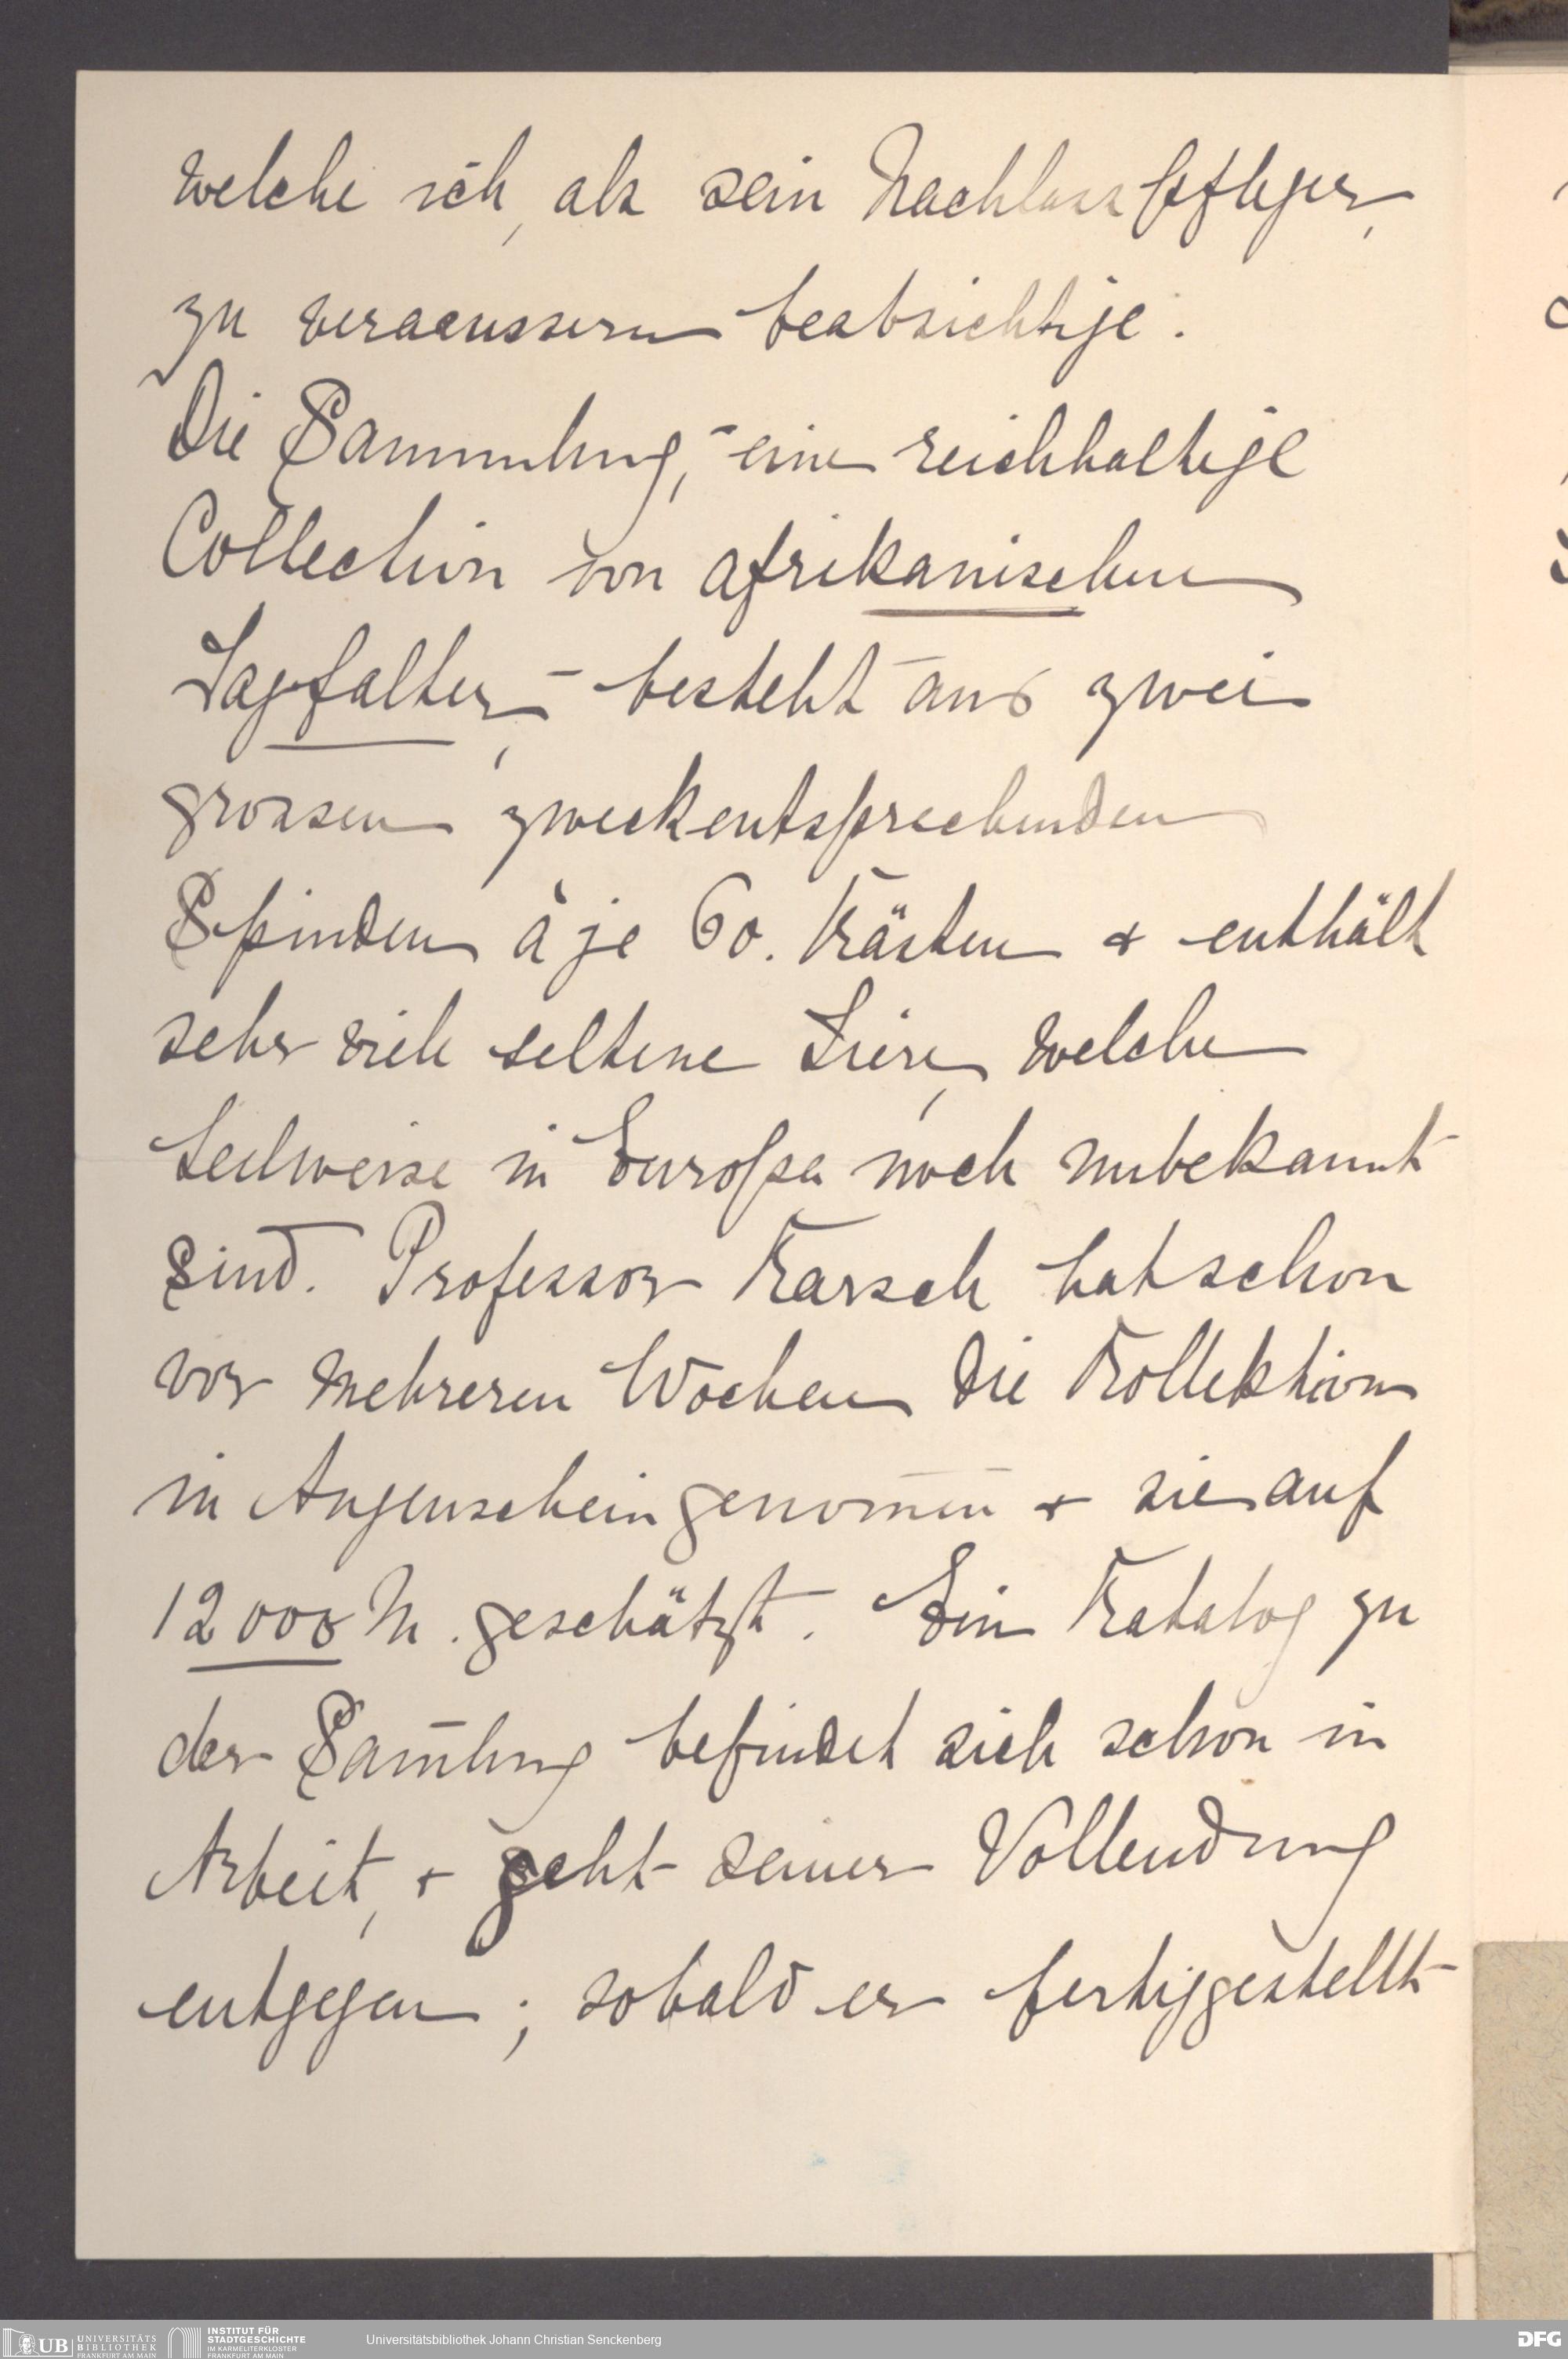 welche ich, als sein Nachlasspfleger,
zu veraeussern beabsichtige.
Die Sammlung, - eine reichhaltige
Collection von afrikanischen
Tagfalter, - besteht aus zwei
grossen zweckentsprechenden
Spinden à je 60. Kästen & enthält
sehr viele seltene Tiere, welche
teilweise in Europa noch unbekannt
sind. Professor Karsch hat schon
vor mehreren Wochen die Kollektion
in Augenschein genom̄en̄ & sie auf
12000 M. geschätzt. Ein Katalog zu
der Sam̄lung befindet sich schon in
Arbeit, & geht seiner Vollendung
entgegen; sobald er fertiggestellt
UB UNIVERSITÄTS BIBLIOTHEK FRANKFURT AM MAIN
INSTITUT FÜR STADTGESCHICHTE IM KARMELITERKLOSTER FRANKFURT AM MAIN
Universitätsbibliothek Johann Christian Senckenberg
DFG